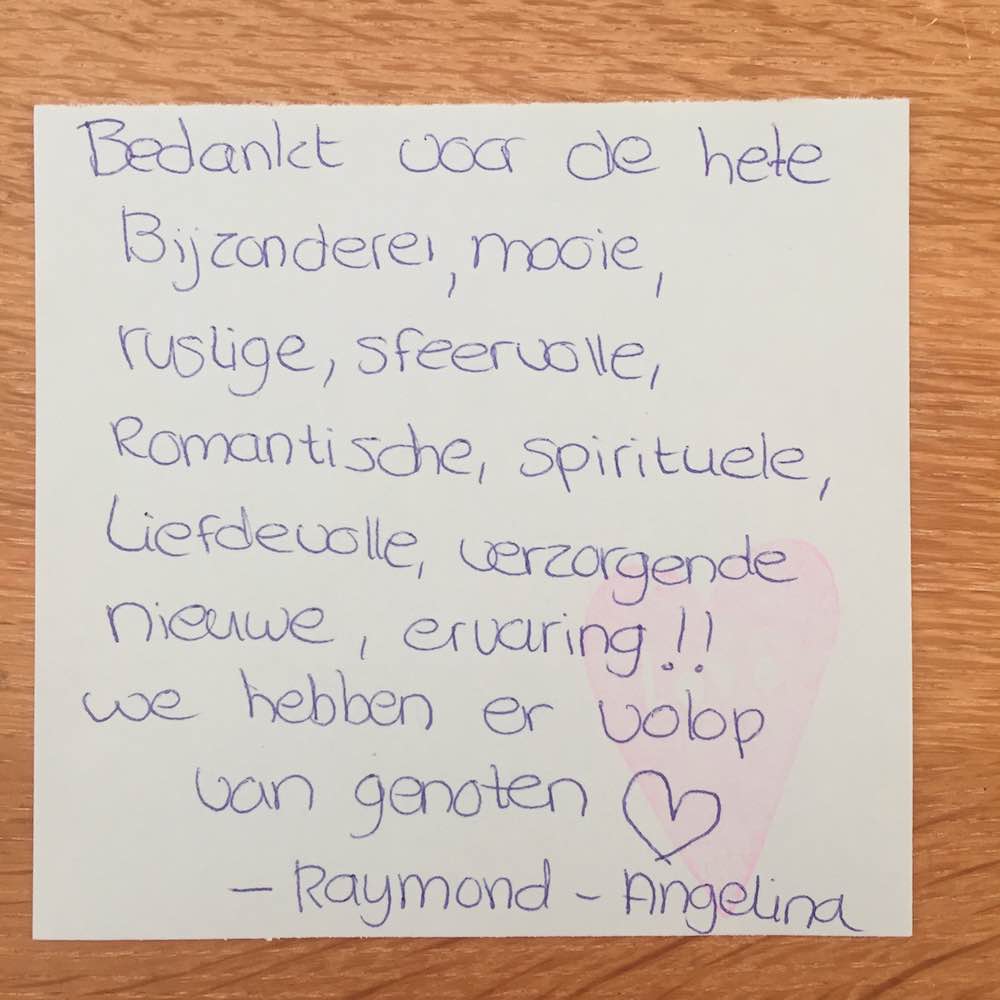 Bedankt voor de hete
Bijzondere, mooie,
rustige, sfeervolle,
Romantische, spirituele,
Liefdevolle, verzorgende
nieuwe, ervaring!!
we hebben er volop
van genoten ♡
- Raymond - Angelina